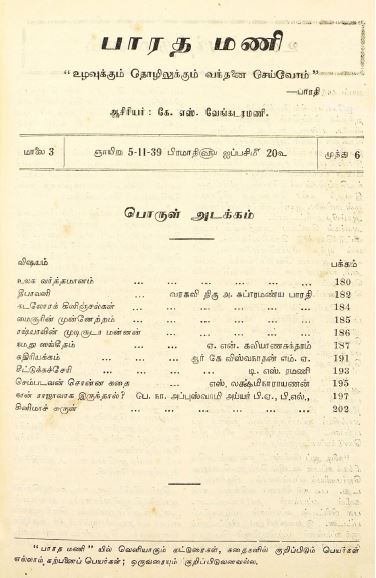 பாரத மணி
“உழவுக்கும் தொழிலுக்கும் வந்தனை செய்வோம்”
—பாரதி
ஆசிரியர் : கே. எஸ். வேங்கடரமணி.
மாலை 3 ஞாயிறு 5-11-39 பிரமாதி௵ ஐப்பசி௴ 20௳ முத்து 6
பொருள் அடக்கம்
விஷயம் பக்கம்
உலக வர்த்தமானம் ... ... ... ... ... 180
தீபாவளி ... வரகவி திரு அ. சுப்ரமண்ய பாரதி 182
கடலோரக் கிளிஞ்சல்கள் ... ... ... ... ... 184
மைசூரின் முன்னேற்றம் ... ... ... ... ... 185
ரஷ்யாவின் முடிசூடா மன்னன் ... ... ... ... 186
நமது லக்ஷியம் ... ஏ. என். கலியாணசுந்தரம் 187
கதிரியக்கம் ... ... ... ஆர் கே விஸ்வநாதன் எம். ஏ. 191
சிட்டுக்கச்சேரி ... ... ... டி. எஸ். ரமணி 193
செம்படவன் சொன்ன கதை ... எஸ். லக்ஷ்மிநாராயணன் 195
நான் ராஜாவாக இருந்தால்? பெ. நா. அப்புஸ்வாமி அய்யர் பி.ஏ., பி.எல்., 197
சினிமாச் சுருள் ... ... ... ... ... 202
“பாரத மணி” யில் வெளியாகும் கட்டுரைகள், கதைகளில் குறிப்பிடும் பெயர்கள்
எல்லாம் கற்பனைப் பெயர்கள் ; ஒருவரையும் குறிப்பிடுவனவல்ல.